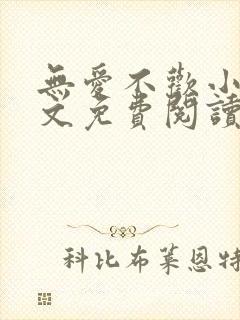 無愛不歡小
文免費閱讀
科比布萊恩特